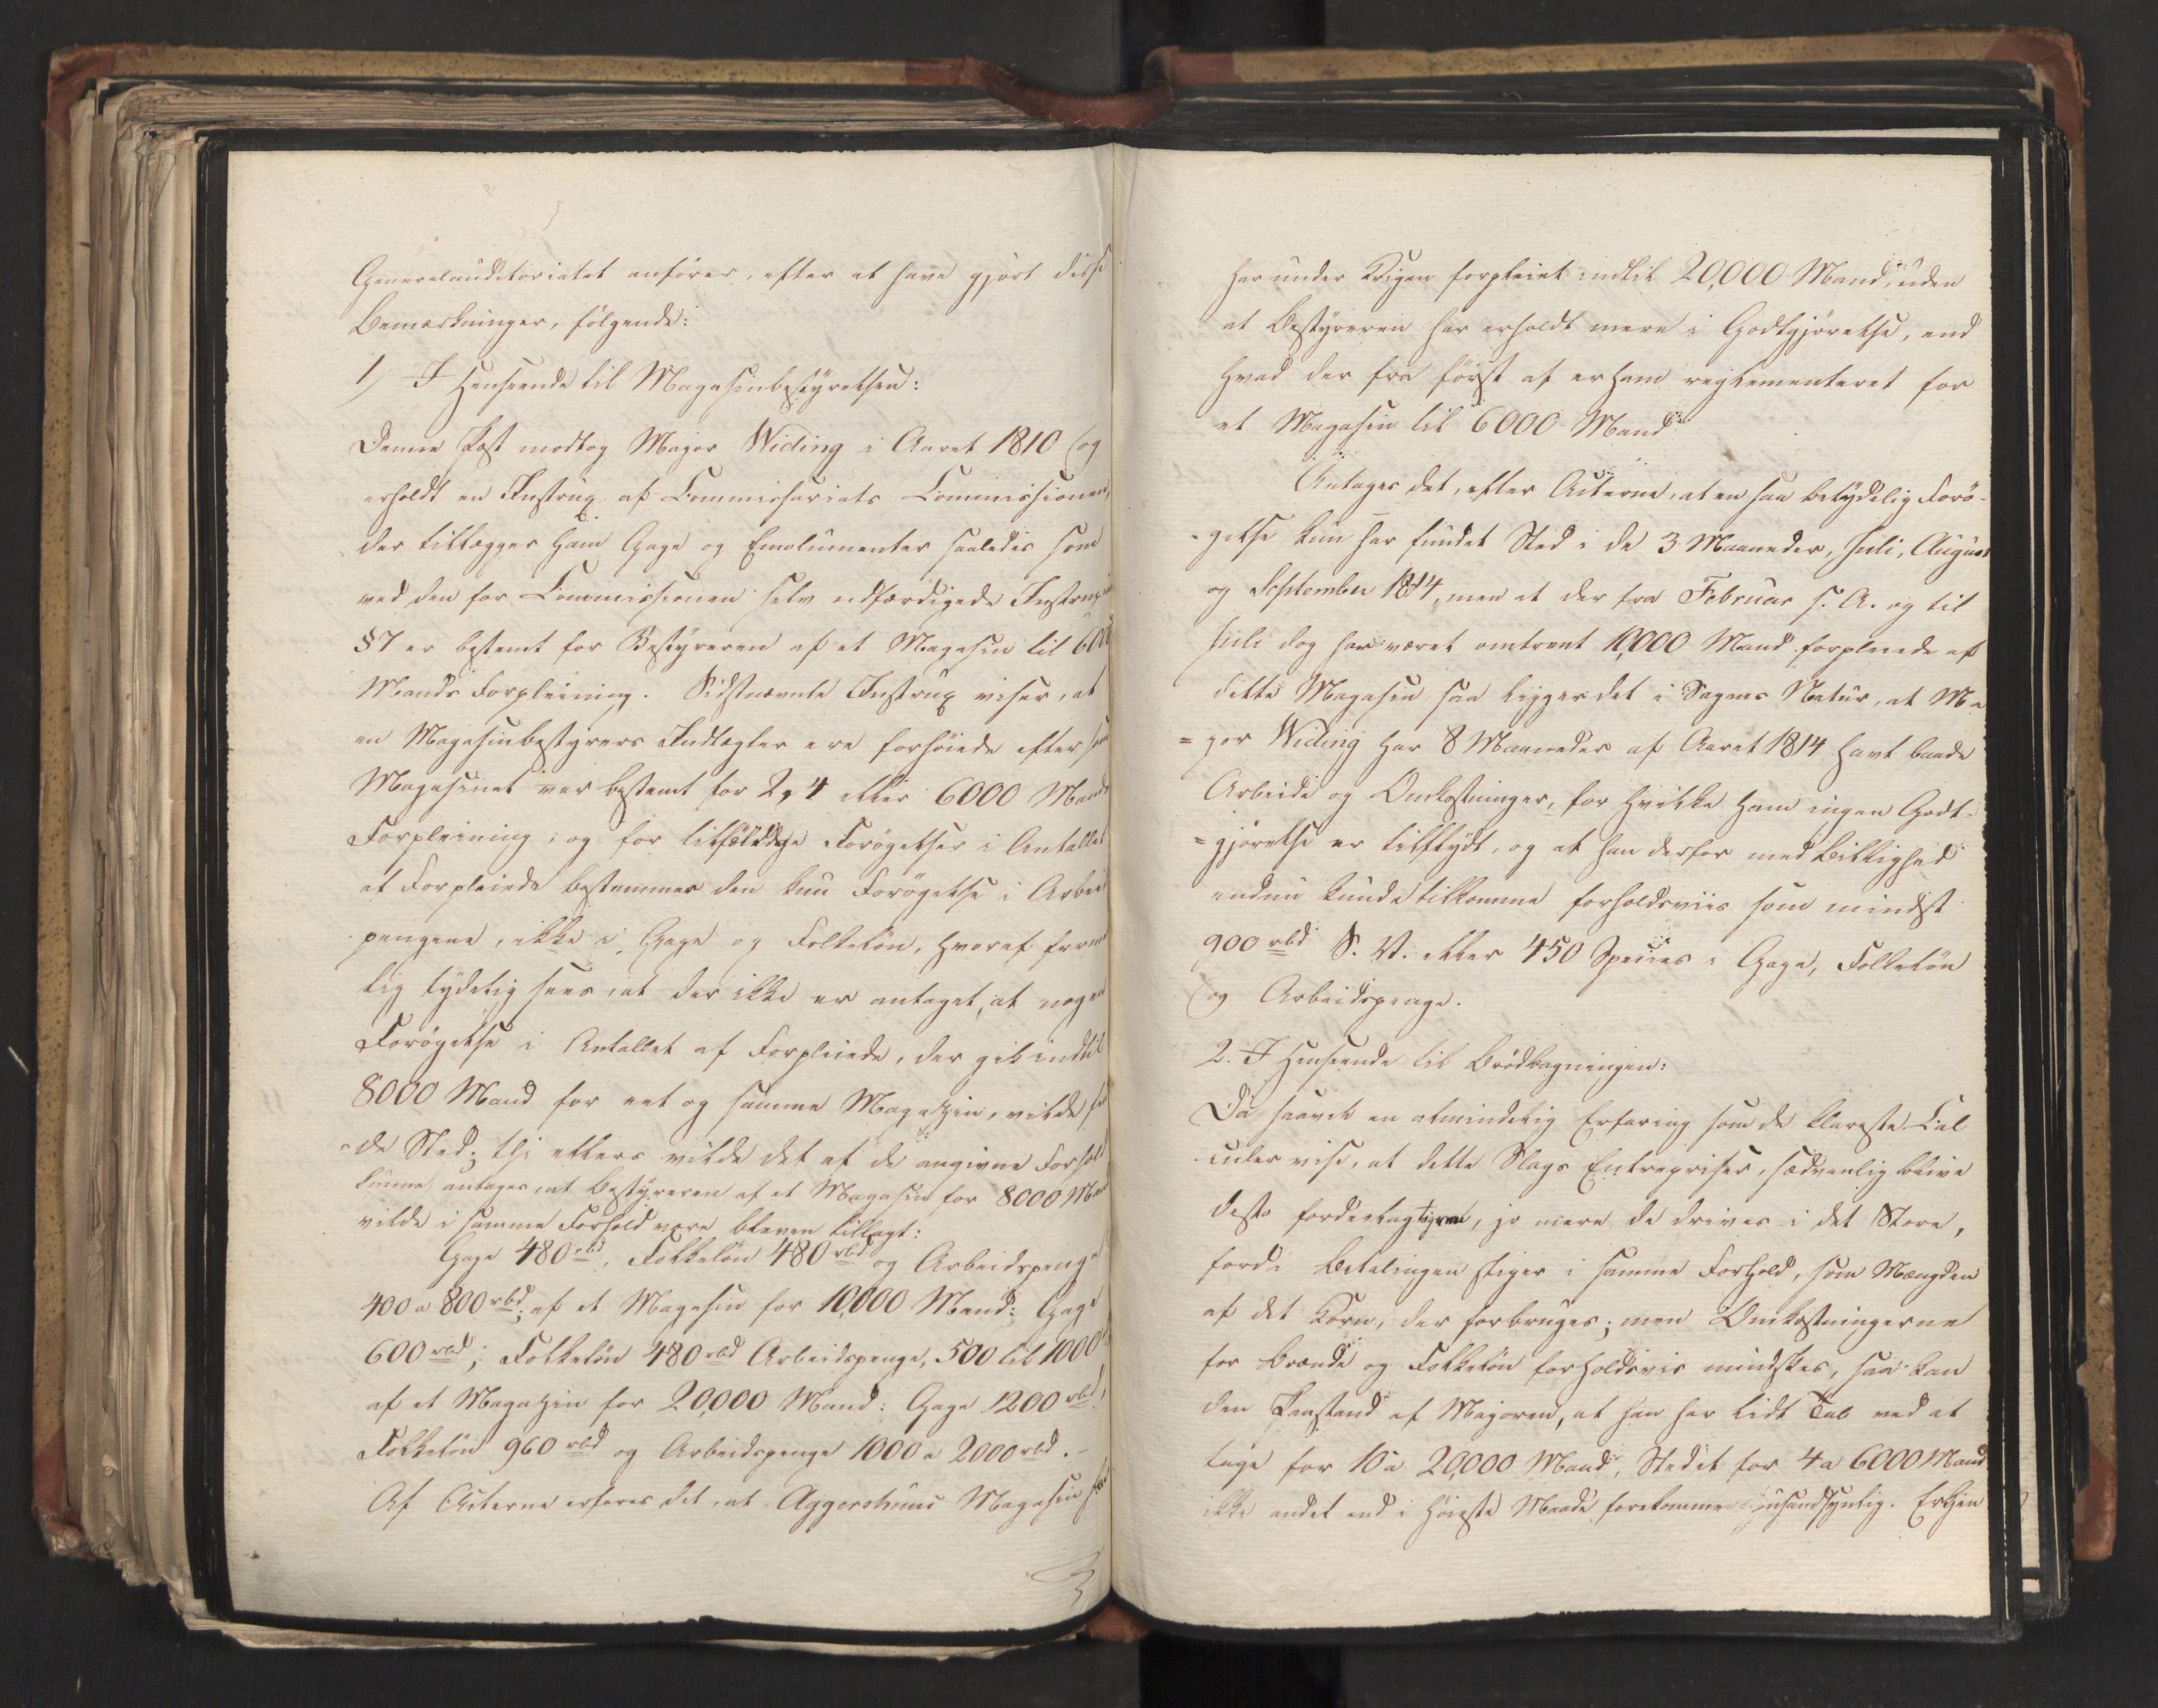 Generalauditoriatet anfører, efter at have gjort disse
Bemærkninger, følgende:
1) I Henseende til Magasinbestyrelsen:
Denne Post modtog Major Widing i Aaret 1810 (og
erholdt en Instrux af Commissariats Commissionen,
der tillægger ham Gage og Emolumenter saaledes som
ved den for Commissionen selv udfærdigede Instrux
§7 er bestemt for Bestyreren af et Magasin til 6000
Mands Forpleining. Sidstnævnte Instrux viser, at
en Magasinbestyrers Indtægter ere forhøiede eftersom
Magasinet var bestemt for 2, 4 eller 6000 Mands
Forpleining; og for tilfældige Forøgelser i Antallet
af Forpleiede bestemmer den kun Forøgelse i Arbeids
pengene, ikke i Gage og Folkeløn, hvoraf frem
lig tydelig sees, at der ikke er antaget, at nogen
Forøgelse i Antallet af Forpleiede, der gik indtil
8000 Mand for eet og samme Magazin, vilde fin
-de Sted; thi ellers vilde det af de angivne Forhold
kunne antages, at Bestyreren af et Magasin for 8000 Mand
vilde i samme Forhold være bleven tillagt:
Gage 480 rbd, Folkeløn 480 rbd og Arbeidspenge
400 a 800 rbd; af et Magasin for 10,000 Mand: Gage
600 rbd; Folkeløn 480 rbd Arbeidspenge, 500 til 1000
af et Magazin for 20,000 Mand: Gage 1200 rbd,
Folkeløn 960 rbd og Arbeidspenge 1000 a 2000 rbd.-
Af Acterne erfares det, at Aggershuus Magasin
har under Krigen forpleiet indtil 20,000 Mand, uden
at Bestyreren har erholdt mere i Godtgjørelse, end
hvad der fra først af er ham reglementeret for
et Magasin til 6000 Mand.
Antages det, efter Acterne, at en saa betydelig Forø-
-gelse kun har fundet Sted i de 3 Maaneder, Juli, August
og September 1814, men at der fra Februar s. A. og til
Juli dog har været omtrent 10,000 Mand forpleiede af
dette Magasin saa ligger det i Sagens Natur, at Ma
=jor Widing har 8 Maaneder af Aaret 1814 havt baade
Arbeide og Omkostninger, for hvilke ham ingen Godt-
=gjørelse er tilflydt, og at han derfor med Billighed
endnu kunde tilkomme forholdsviis som mindst
900 rbd S. V. eller 450 Species i Gage, Folkeløn
og Arbeidspenge.
2. I Henseende til Brødbagningen:
Da saavel en almindelig Erfaring som de klareste Cal
culer vise, at dette Slags Entrepriser, sædvanlig blive
desto fordelagtigere, jo mere de drives i det Store,
fordi Betalingen stiger i samme Forhold, som Mængden
af det Korn, der forbruges; men Omkostningerne
for Brænde og Folkeløn forholdsvis mindskes, saa kan
den Paastand af Majoren, at han har lidt Tab ved at
bage for 10 a 20,000 Mand, Stedet for 4 a 6000 Mand
ikke andet end i høieste Maade forekomme usandsynlig.